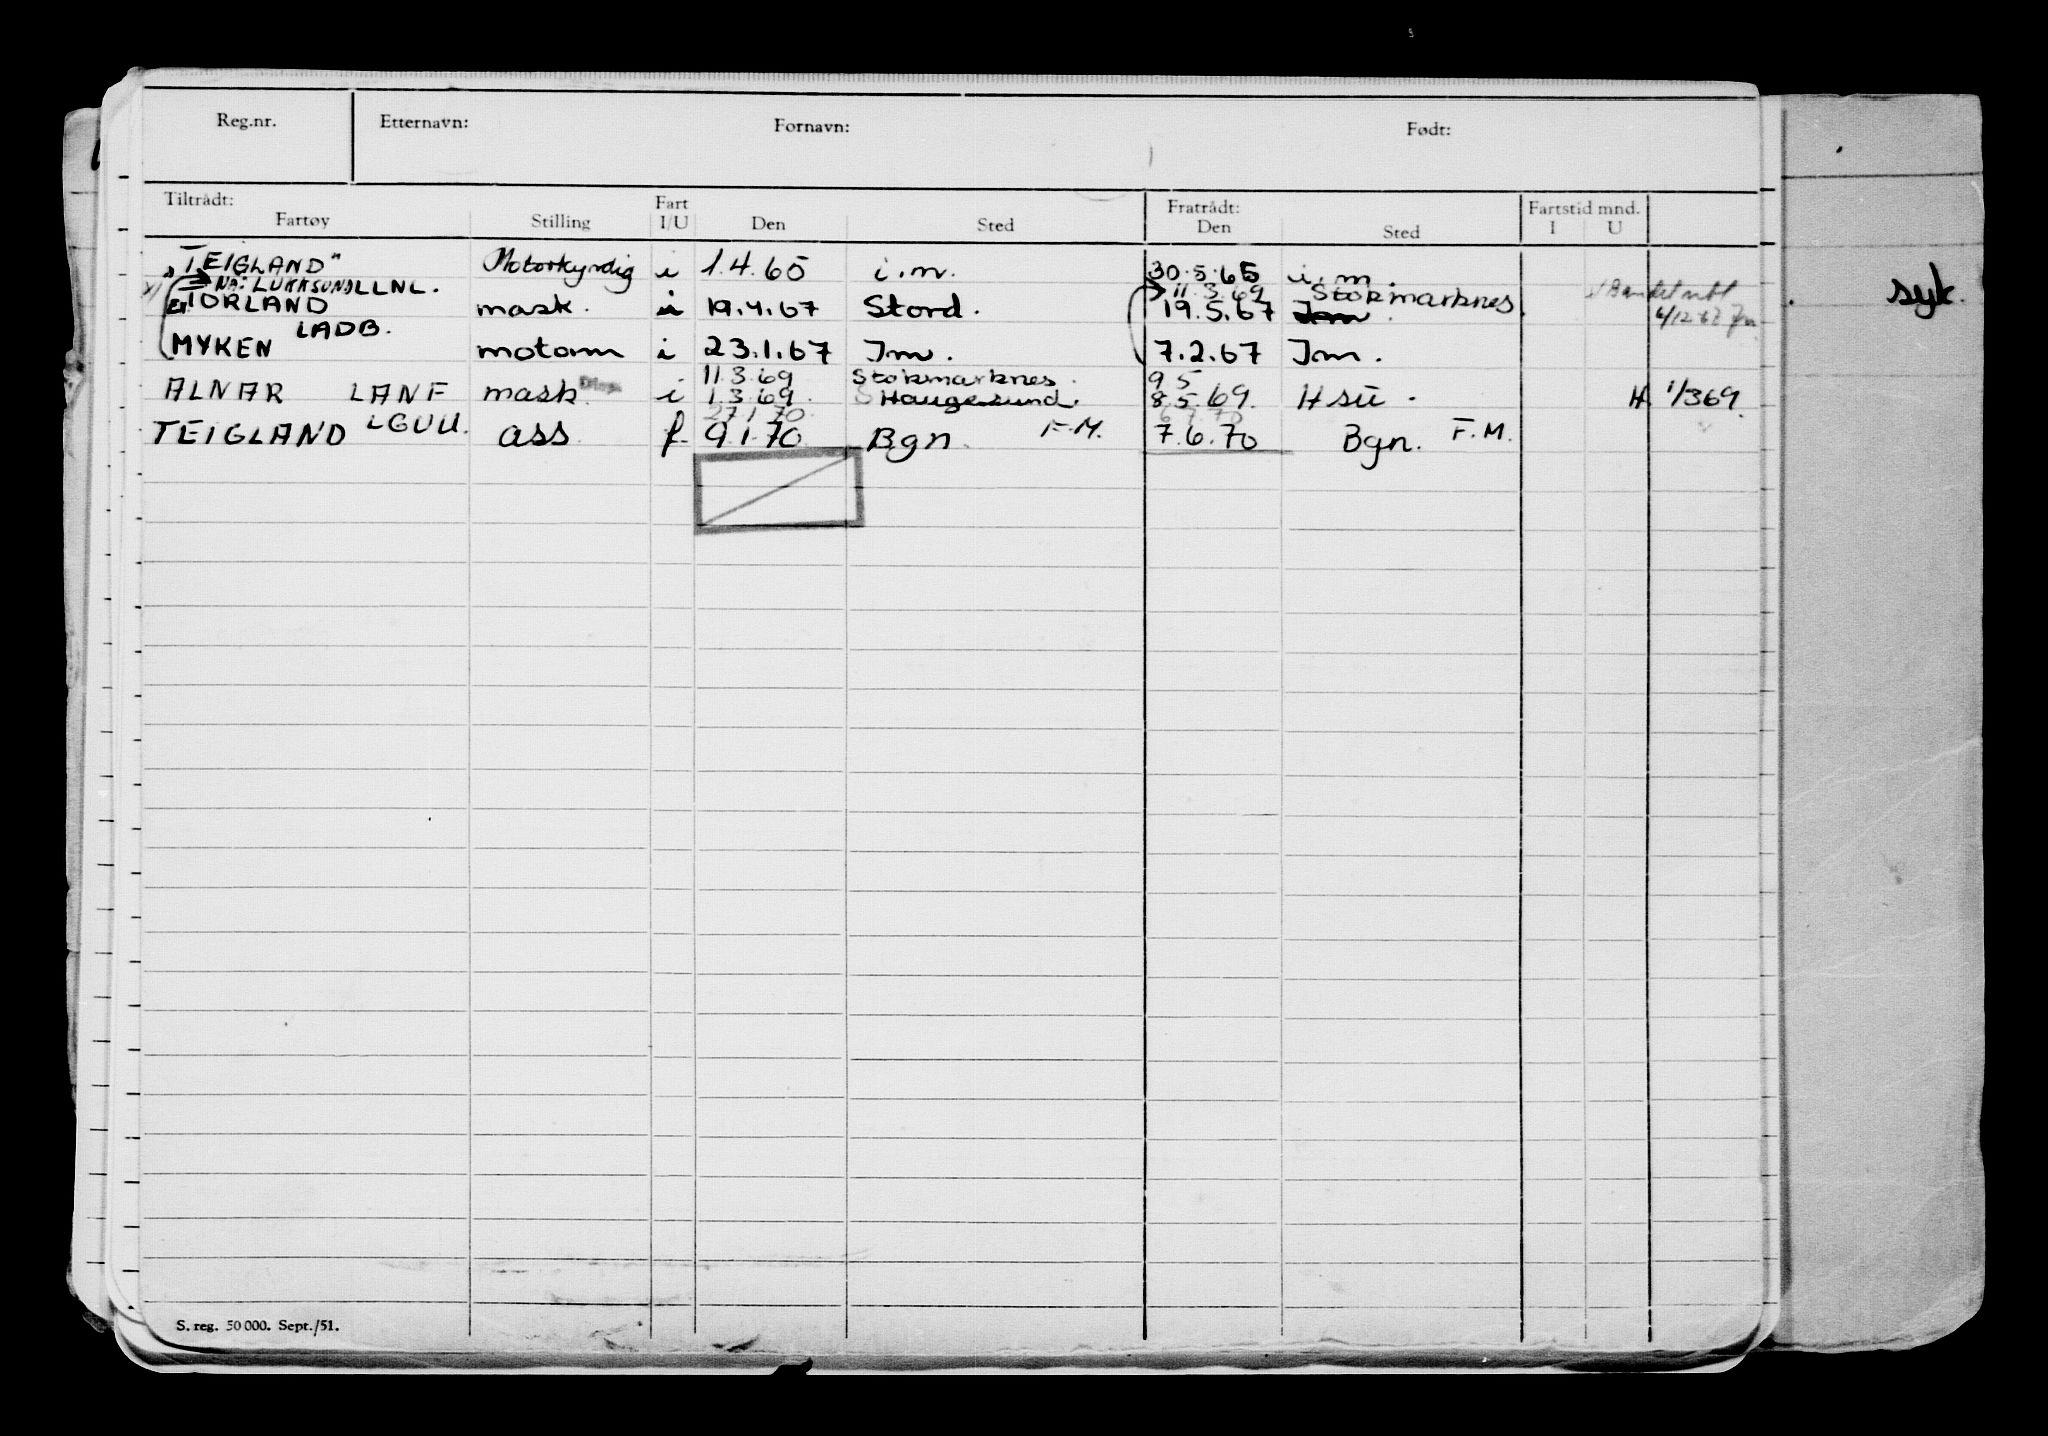 Reg.nr. Etternavn: Fornavn: Født:
Tiltrådt: Fratrådt: Fartstid mnd.
Fartøy Stilling Fart I/U Den Sted Den Sted I U
"TEIGLAND" Motorkyndig i 1.4.65 i.m. 30.5.65 i.m.
Nå: LUKKSUND LLNL. 11.3.69 Stokmarknes
TORLAND mask. i 19.4.67 Stord. 19.5.67 Jm. 6/12.67
LADB.
MYKEN motorm i 23.1.67 Jm. 7.2.67 Jm.
11.3.69 Stokmarknes. 9 5
ALNAR LANF mask. i 1.3.69. Haugesund. 8.5.69. Hsu. H 1/369.
27.1.70.
TEIGLAND LGUU. ass f 9.1.70 Bgn. F.M. 7.6.70 Bgn. F.M.
syk.
S. reg. 50 000. Sept./51.